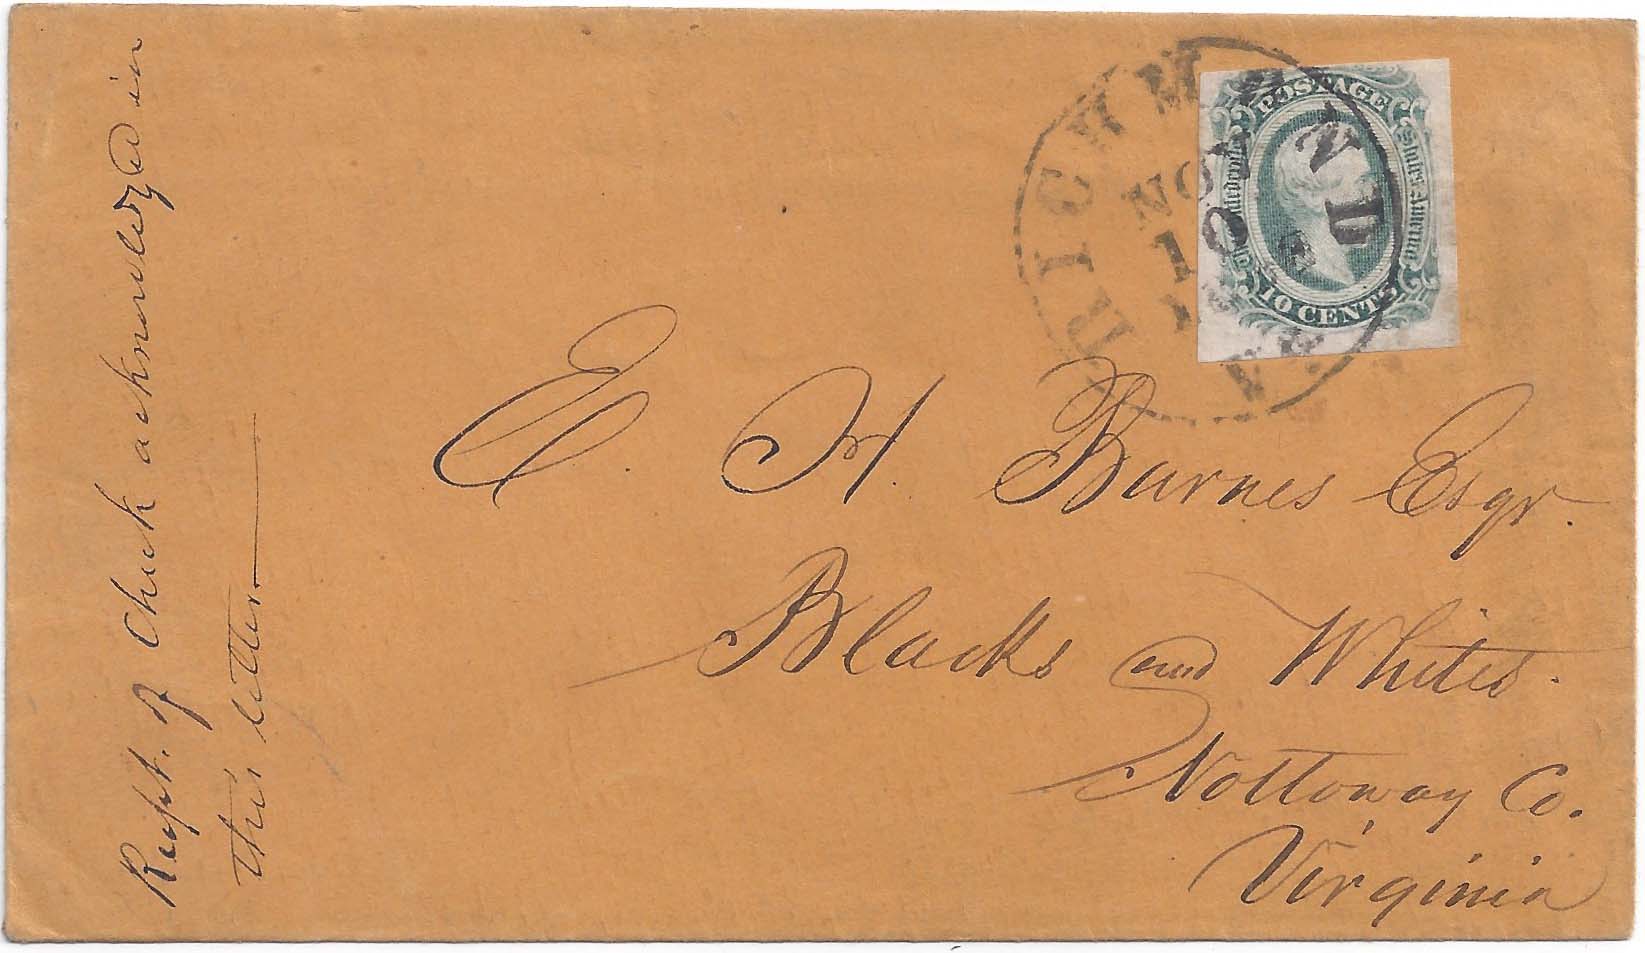 Recpt. of Check acknowledged in
this letter
RICHMOND
VA
NOV
10
POSTAGE
Confederate
States America
10 CENTS
E. H. Barnes Esqr.
Blacks and Whites.
Nottoway Co.
Virginia